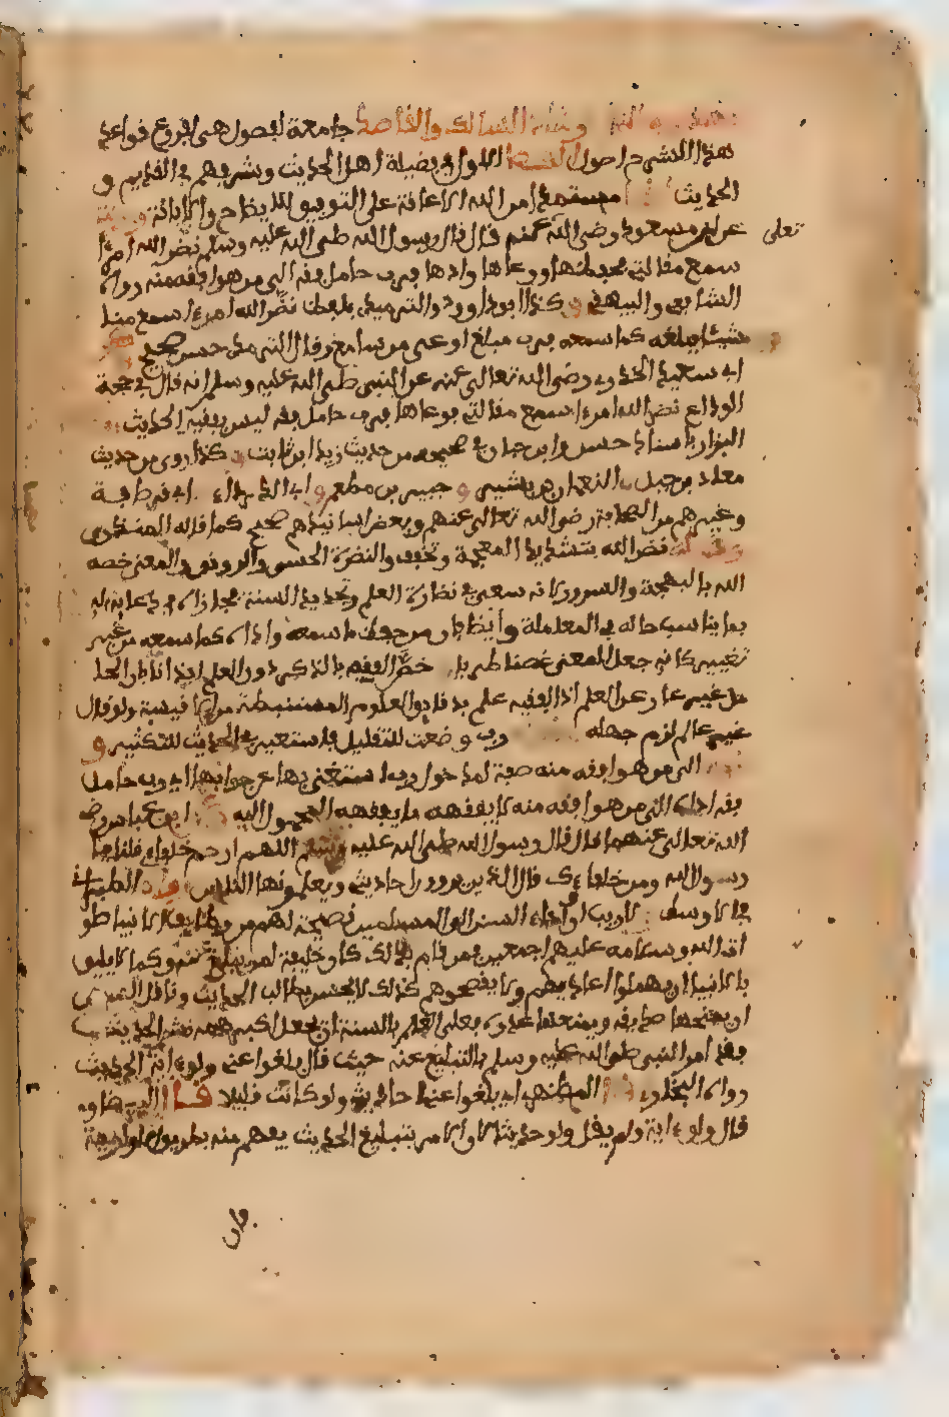 وشأن السالك والقاصد جامعة لفصول هي لفروع قواعد
هذا الشرح اصول الفصل الاول في فضيلة اهل الحديث وشرفهم في القديم و
الحديث مستمدا من الله الاعانة على التوفيق للايضاح والابانة
عن ابن مسعود رضي الله عنه قال قال رسول الله صلى الله عليه وسلم نضر الله امرءا
تعلى
سمع مقالتي فحفظها ووعاها واداها فرب حامل فقه الى من هو افقه منه رواه
الشافعي والبيهقي وكذا ابو داوود والترمذي بلفظ نضر الله امرءا سمع منا
شيئا فبلغه كما سمعه فرب مبلغ اوعى من سامع وقال الترمذي حسن صحيح
ابي سعيد الخدري رضي الله تعالى عنه عن النبي صلى الله عليه وسلم انه قال في حجة
الوداع نضر الله امرءا سمع مقالتي فوعاها فرب حامل فقه ليس بفقيه الحديث
البزار باسناد حسن وابن حبان في صحيحه من حديث زيد ابن ثابت وكذا روي من حديث
معاذ بن جبل والنعمان بن بشير وجبير بن مطعم وابي الدرداء وابي قرصافة
وغيرهم من الصحابة رضي الله تعالى عنهم وبعض اسانيدهم صحيح كما قاله المنذري
وقوله نضر الله بتشديد المعجمة وتخفف والنضرة الحسن والرونق والمعنى خصه
الله بالبهجة والسرور لانه سعى في نضارة العلم وتجديد السنة فجازاه في دعائه له
بما يناسب حاله في المعاملة وايضا فان من حفظ ما سمعه واداه كما سمعه من غير
تغيير كانه جعل المعنى غضا طريا وخص الفقيه بالذكر دون العالم ايذانا بان الحا
مل غير عار عن العلم اذ الفقيه علم بدقايق العلوم المستنبطة من الاقيسة ولو قال
غير عالم لزم جهله ورب وضعت للتقليل فاستعير في الحديث للتكثير و
الى من هو افقه منه صفة لمدخول رب استغنى بها عن جوابها اي رب حامل
فقه اداه الى من هو افقه منه لا يفقهه ما يفقهه المحمول اليه ابن عباس رضي
الله تعالى عنهما قال قال رسول الله صلى الله عليه وسلم اللهم ارحم خلفاي قلنا يا
رسول الله ومن خلفاءك قال الذين يروون احاديثي ويعلمونها الناس رواه الطبراني
في الاوسط لا ريب ان اداء السنن الى المسلمين نصيحة لهم من وظايف الانبيا صلو
ات الله وسلامه عليهم اجمعين فمن قام بذلك كان خليفة لمن يبلغ عنه وكما لا يليق
بالانبيا ان يهملوا اعاديهم ولا ينصحوهم كذلك لا يحسن بطالب الحديث وناقل السنن
ان يمنحها صديقه ويمنعها عدوه فعلى العالم بالسنة ان يجعل اكبر همه نشر الحديث
فقد امر النبي صلى الله عليه وسلم بالتبليغ عنه حيث قال بلغوا عني ولو اية الحديث
رواه البخاري قال المظهري اي بلغوا عني احاديثي ولو كانت قليلا قال البيضاوي
قال ولو اية ولم يقل ولو حديثا لان الامر بتبليغ الحديث يفهم منه بطريق الاولوية
فان